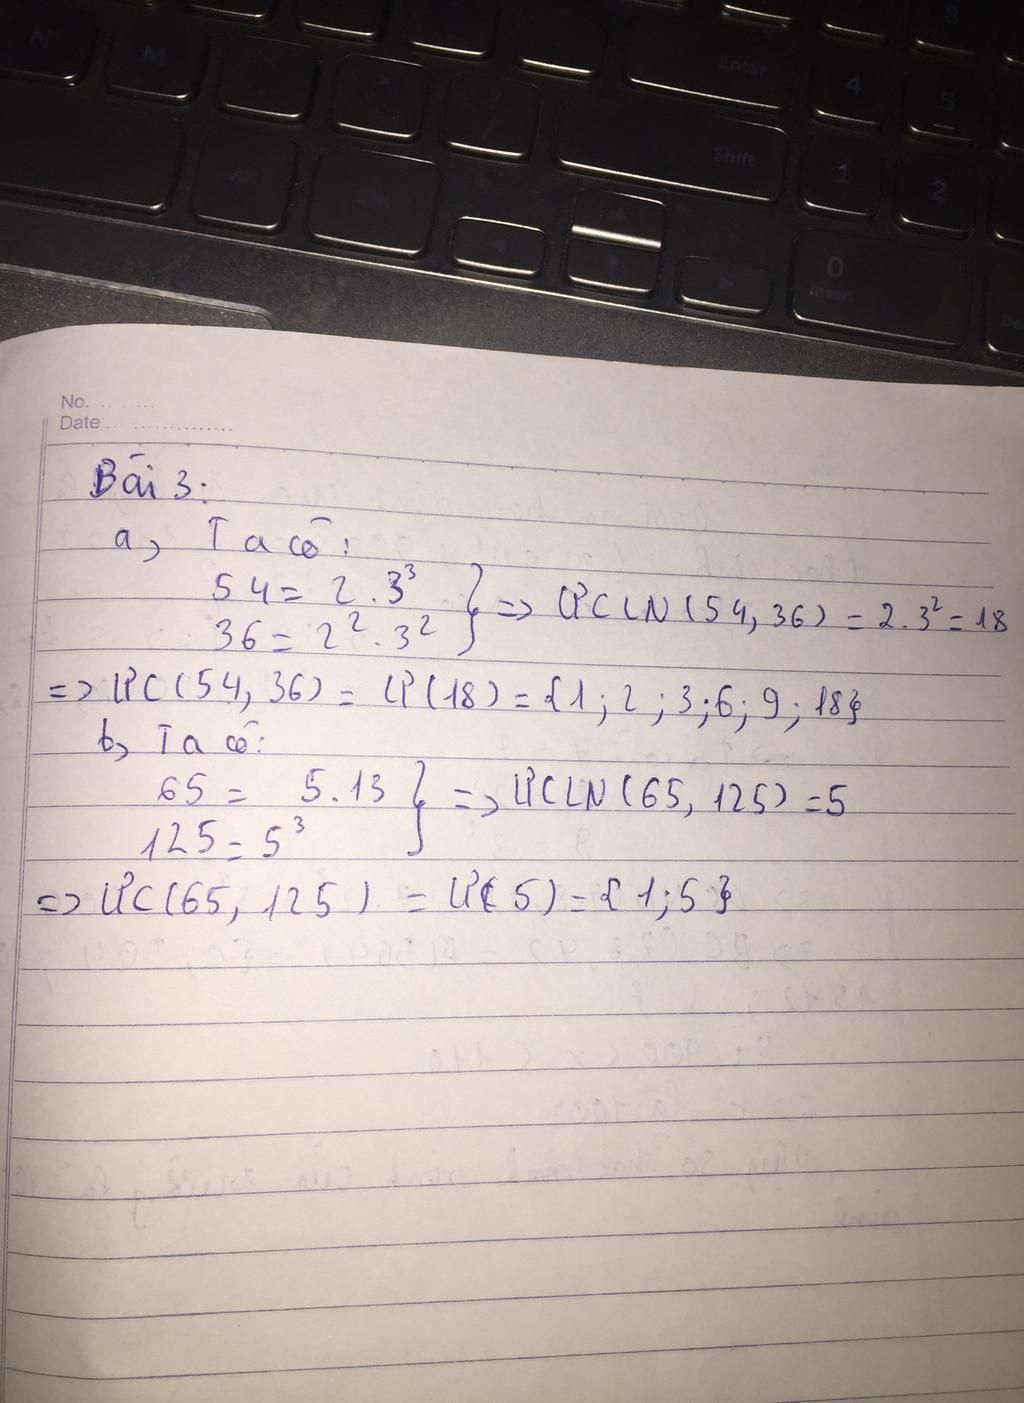 N
M
<
>
/
Enter
4
5
8
Alt
Shift
1
2
0
Insert
De
No.
Date
Bài 3:
a, Ta có:
54 = 2.3³
36 = 2².3²
} => ƯCLN(54, 36) = 2.3² = 18
=> ƯC(54, 36) = Ư(18) = {1; 2; 3; 6; 9; 18}
b, Ta có:
65 = 5.13
125 = 5³
} => ƯCLN(65, 125) = 5
=> ƯC(65, 125) = Ư(5) = {1; 5}